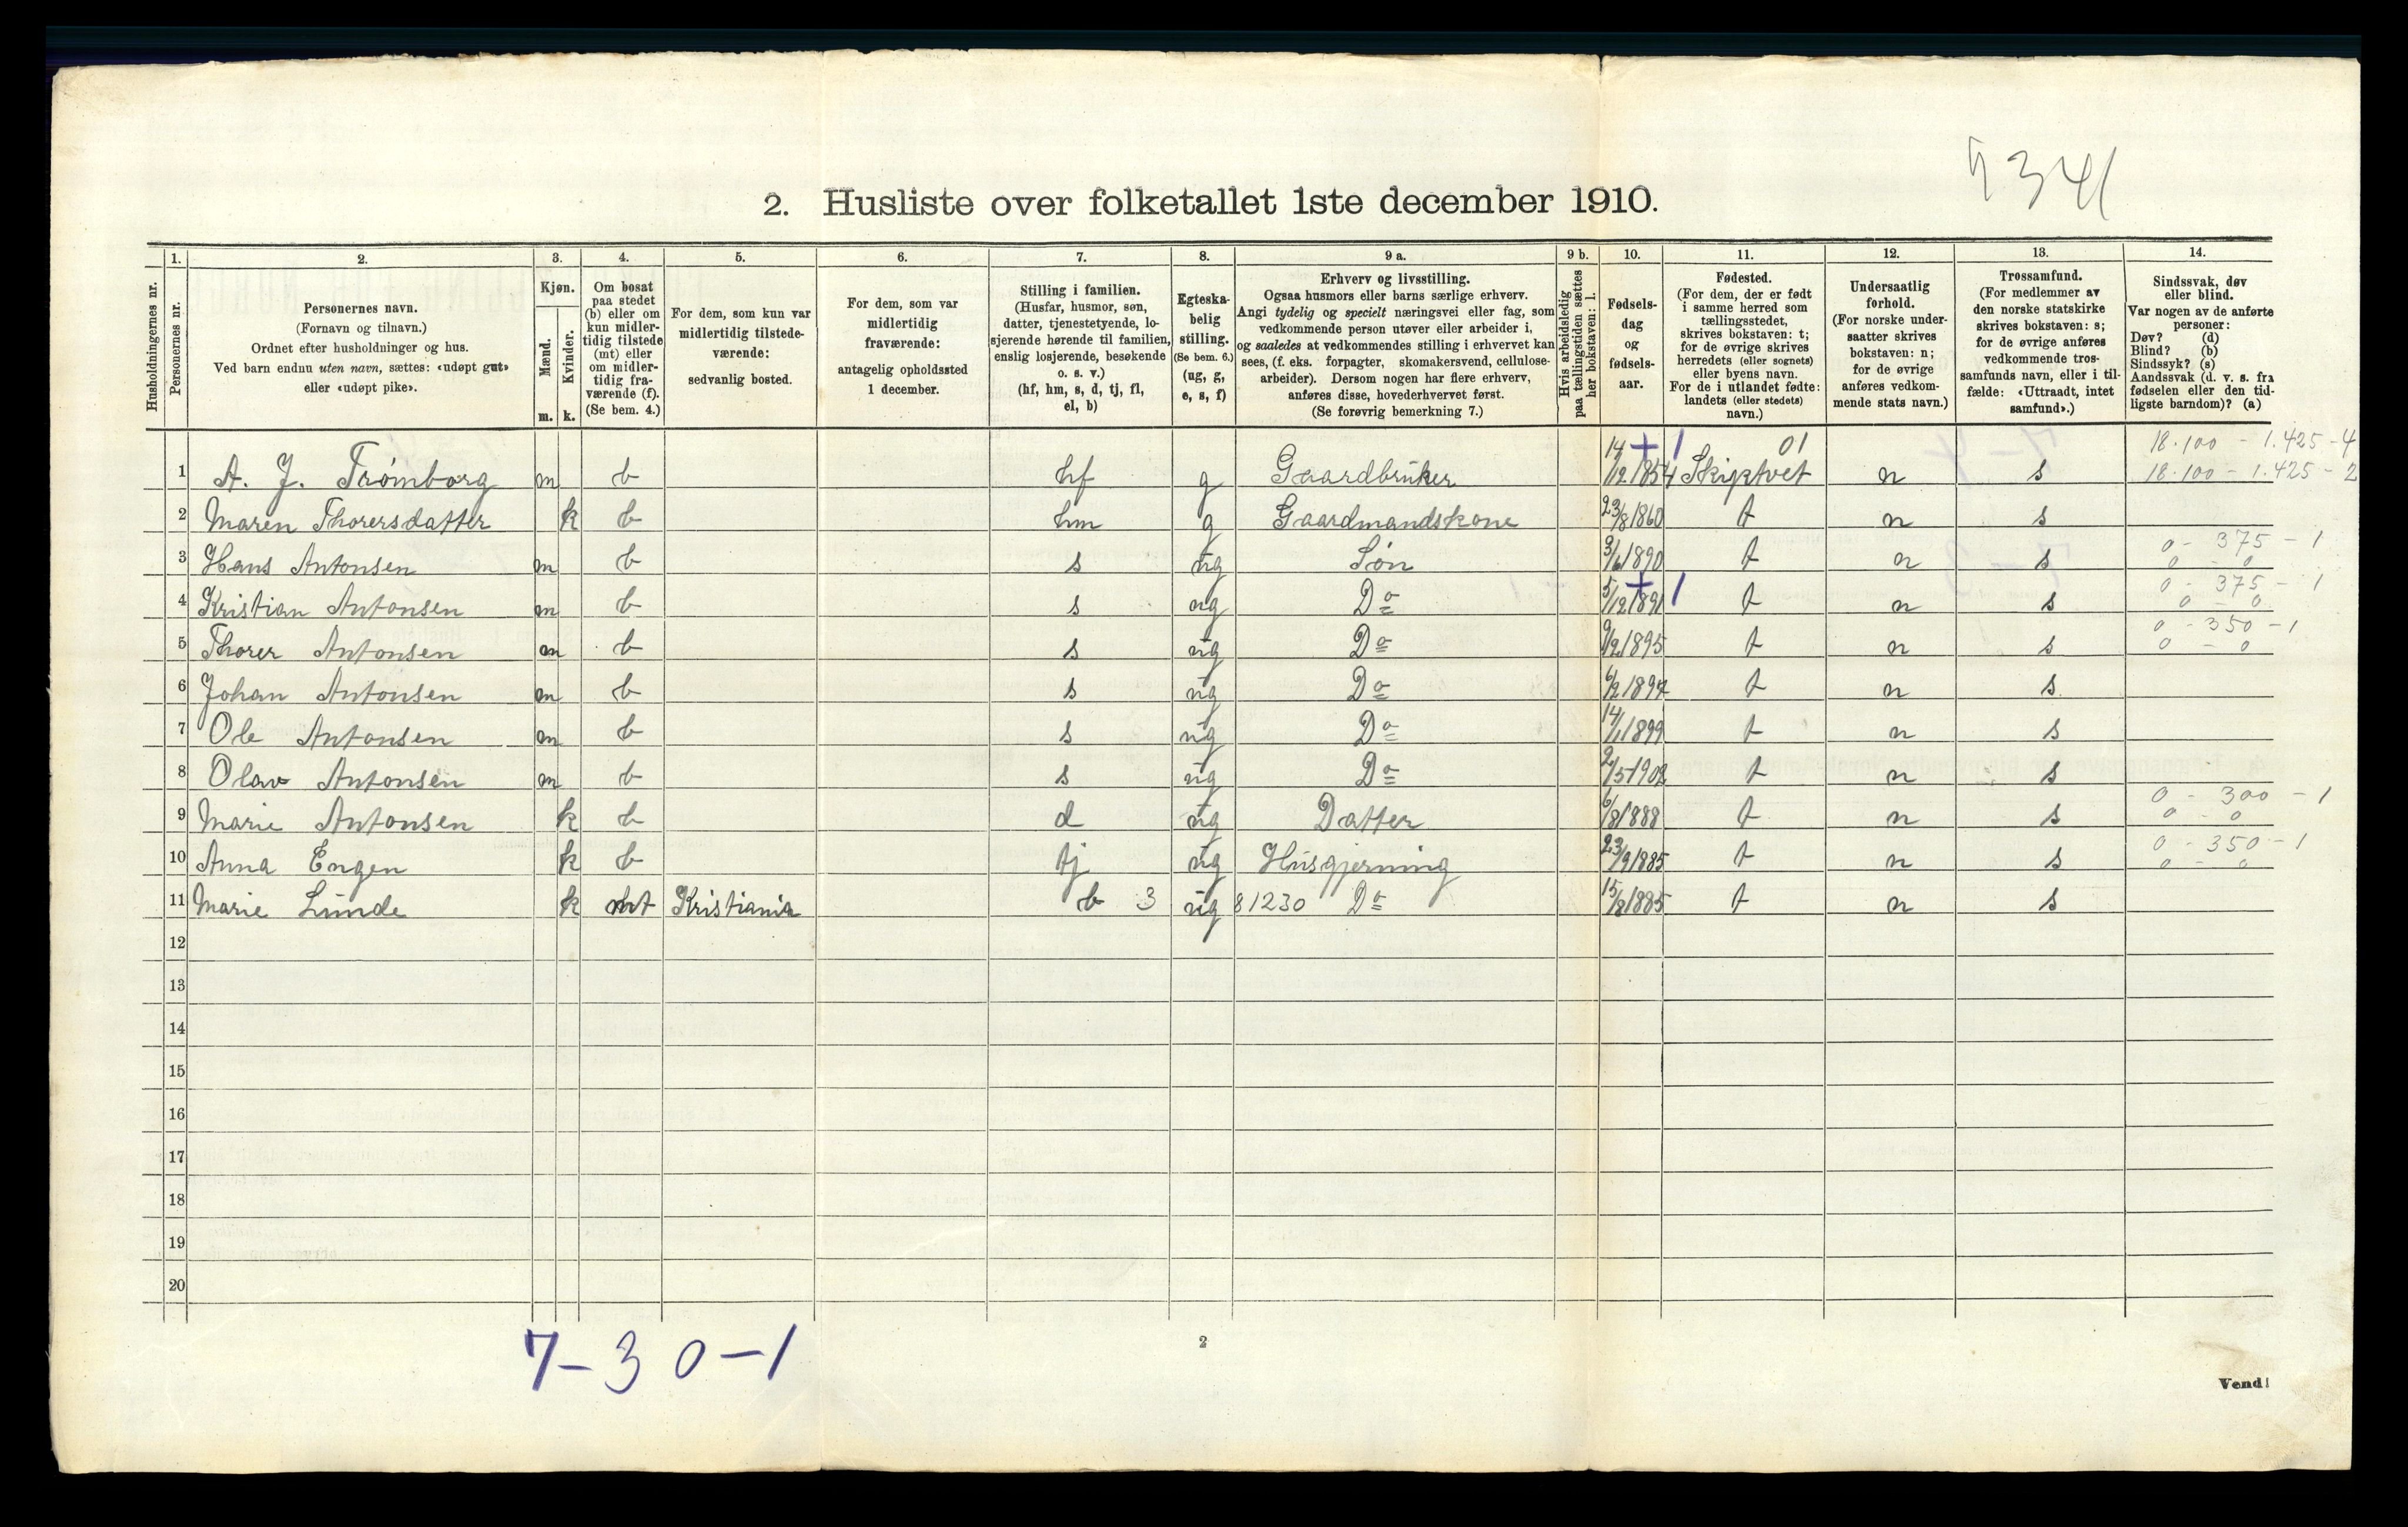 7341
2. Husliste over folketallet 1ste december 1910.
Husholdningernes nr.
1. Personernes nr.
2. Personernes navn. (Fornavn og tilnavn.) Ordnet efter husholdninger og hus. Ved barn endnu uten navn, sættes: «udøpt gut» eller «udøpt pike».
3. Kjøn. Mænd. m. Kvinder. k.
4. Om bosat paa stedet (b) eller om kun midlertidig tilstede (mt) eller om midlertidig fraværende (f). (Se bem. 4.)
5. For dem, som kun var midlertidig tilstedeværende: sedvanlig bosted.
6. For dem, som var midlertidig fraværende: antagelig opholdssted 1 december.
7. Stilling i familien. (Husfar, husmor, søn, datter, tjenestetyende, losjerende hørende til familien, enslig losjerende, besøkende o. s. v.) (hf, hm, s, d, tj, fl, el, b)
8. Egteskabelig stilling. (Se bem. 6.) (ug, g, e, s, f)
9 a. Erhverv og livsstilling. Ogsaa husmors eller barns særlige erhverv. Angi tydelig og specielt næringsvei eller fag, som vedkommende person utøver eller arbeider i, og saaledes at vedkommendes stilling i erhvervet kan sees, (f. eks. forpagter, skomakersvend, cellulosearbeider). Dersom nogen har flere erhverv, anføres disse, hovederhvervet først. (Se forøvrig bemerkning 7.)
9 b. Hvis arbeidsledig paa tællingstiden sættes her bokstaven: l.
10. Fødselsdag og fødselsaar.
11. Fødested. (For dem, der er født i samme herred som tællingsstedet, skrives bokstaven: t; for de øvrige skrives herredets (eller sognets) eller byens navn. For de i utlandet fødte: landets (eller stedets) navn.)
12. Undersaatlig forhold. (For norske undersaatter skrives bokstaven: n; for de øvrige anføres vedkommende stats navn.)
13. Trossamfund. (For medlemmer av den norske statskirke skrives bokstaven: s; for de øvrige anføres vedkommende trossamfunds navn, eller i tilfælde: «Uttraadt, intet samfund».)
14. Sindssvak, døv eller blind. Var nogen av de anførte personer: Døv? (d) Blind? (b) Sindssyk? (s) Aandssvak (d. v. s. fra fødselen eller den tidligste barndom)? (a)
14 + 1 01 18.100 - 1.425 - 4
1 A. J. Trømborg m b hf g Gaardbruker /12 1854 Skiptvet n s 18.100 - 1.425 - 2
2 Maren Thorersdatter k b hm g Gaardmandskone 23/8 1860 t n s
3 Hans Antonsen m b s ug Søn 3/6 1890 t n s 0 - 375 - 1 0 - 0
4 Kristian Antonsen m b s ug Do 5/12 1891 + 1 t n s 0 - 375 - 1 0 - 0
5 Thorer Antonsen m b s ug Do 9/2 1895 t n s 0 - 350 - 1 0 - 0
6 Johan Antonsen m b s ug Do 6/2 1897 t n s
7 Ole Antonsen m b s ug Do 14/1 1899 t n s
8 Olav Antonsen m b s ug Do 2/5 1902 t n s
9 Marie Antonsen k b d ug Datter 6/8 1888 t n s 0 - 300 - 1 0 - 0
10 Anna Engen k b tj ug Husgjerning 23/9 1885 t n s 0 - 350 - 1 0 - 0
11 Marie Lunde k mt Kristiania b 3 ug 81230 Do 15/8 1885 t n s
12
13
14
15
16
17
18
19
20
7 - 3 0 - 1
2
Vend!